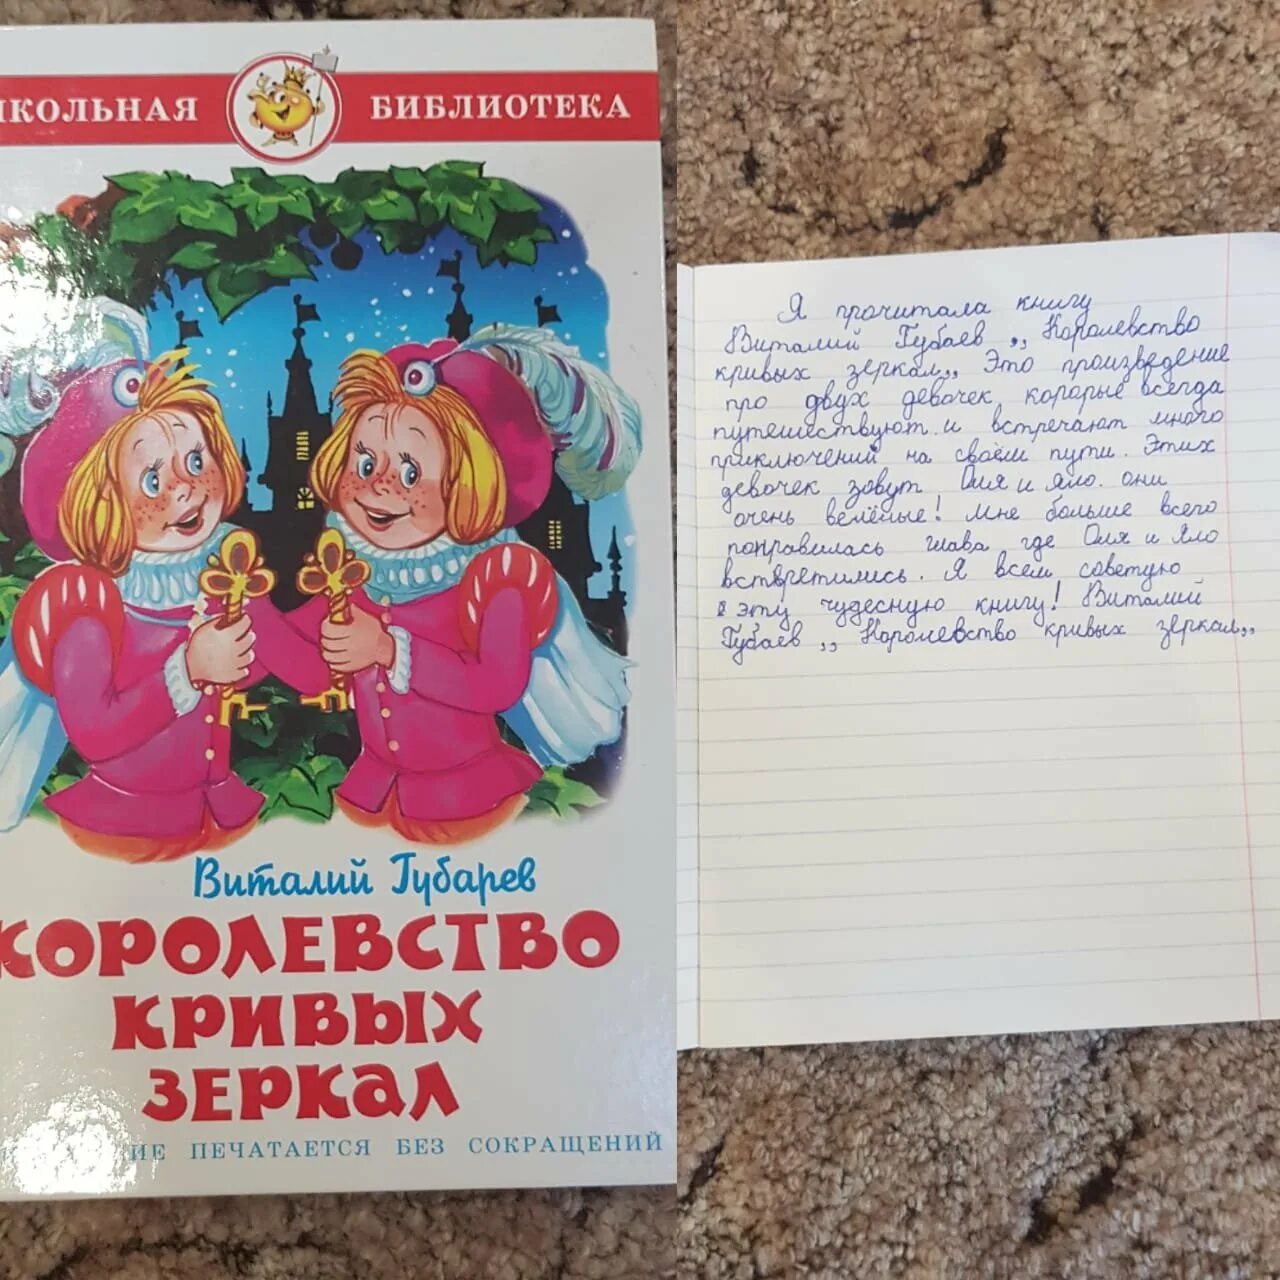 КОЛЬНАЯ БИБЛИОТЕКА
Виталий Губарев
КОРОЛЕВСТВО
КРИВЫХ
ЗЕРКАЛ
ИЕ ПЕЧАТАЕТСЯ БЕЗ СОКРАЩЕНИЙ
Я прочитала книгу
Виталий Губаев ,, Королевство
кривых зеркал,, Это произведение
про двух девочек корорые всегда
путешествуют и встречают много
приключений на своём пути. Этих
девочек зовут Оля и Яло. они
очень велёлые! Мне больше всего
понравилась глава где Оля и Яло
вствретились. Я всем советую
эту чудесную книгу! Виталий
Губаев ,, Королевство кривых зеркал,,